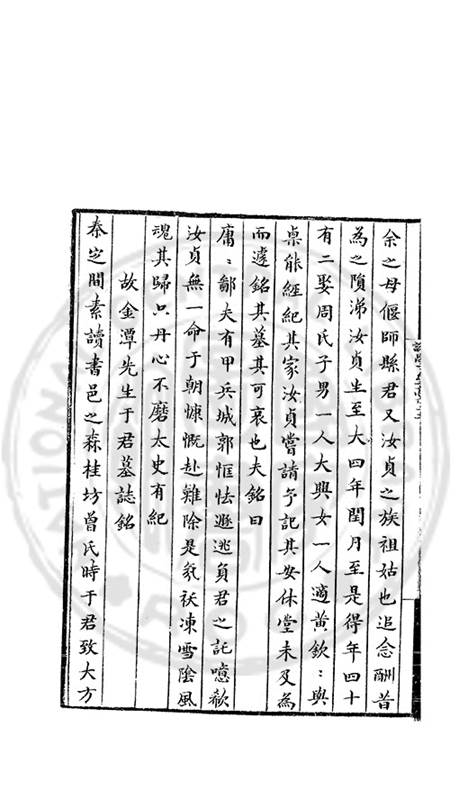 余之母偃師縣君又汝貞之族祖姑也追念酬昔
為之隕涕汝貞生至大四年閏月至是得年四十
有二娶周氏子男一人大興女一人適黃欽〻與
稟能經紀其家汝貞嘗請予記其安休堂未及為
而遽銘其墓其可哀也夫銘曰
庸〻鄙夫有甲兵城郭恇怯遯逃負君之託噫歔
汝貞無一命于朝慷慨赴難除是氛祅凍雪陰風
魂其歸只丹心不磨太史有紀
故金潭先生于君墓誌銘
泰定間素讀書邑之森桂坊曾氏時于君致大方